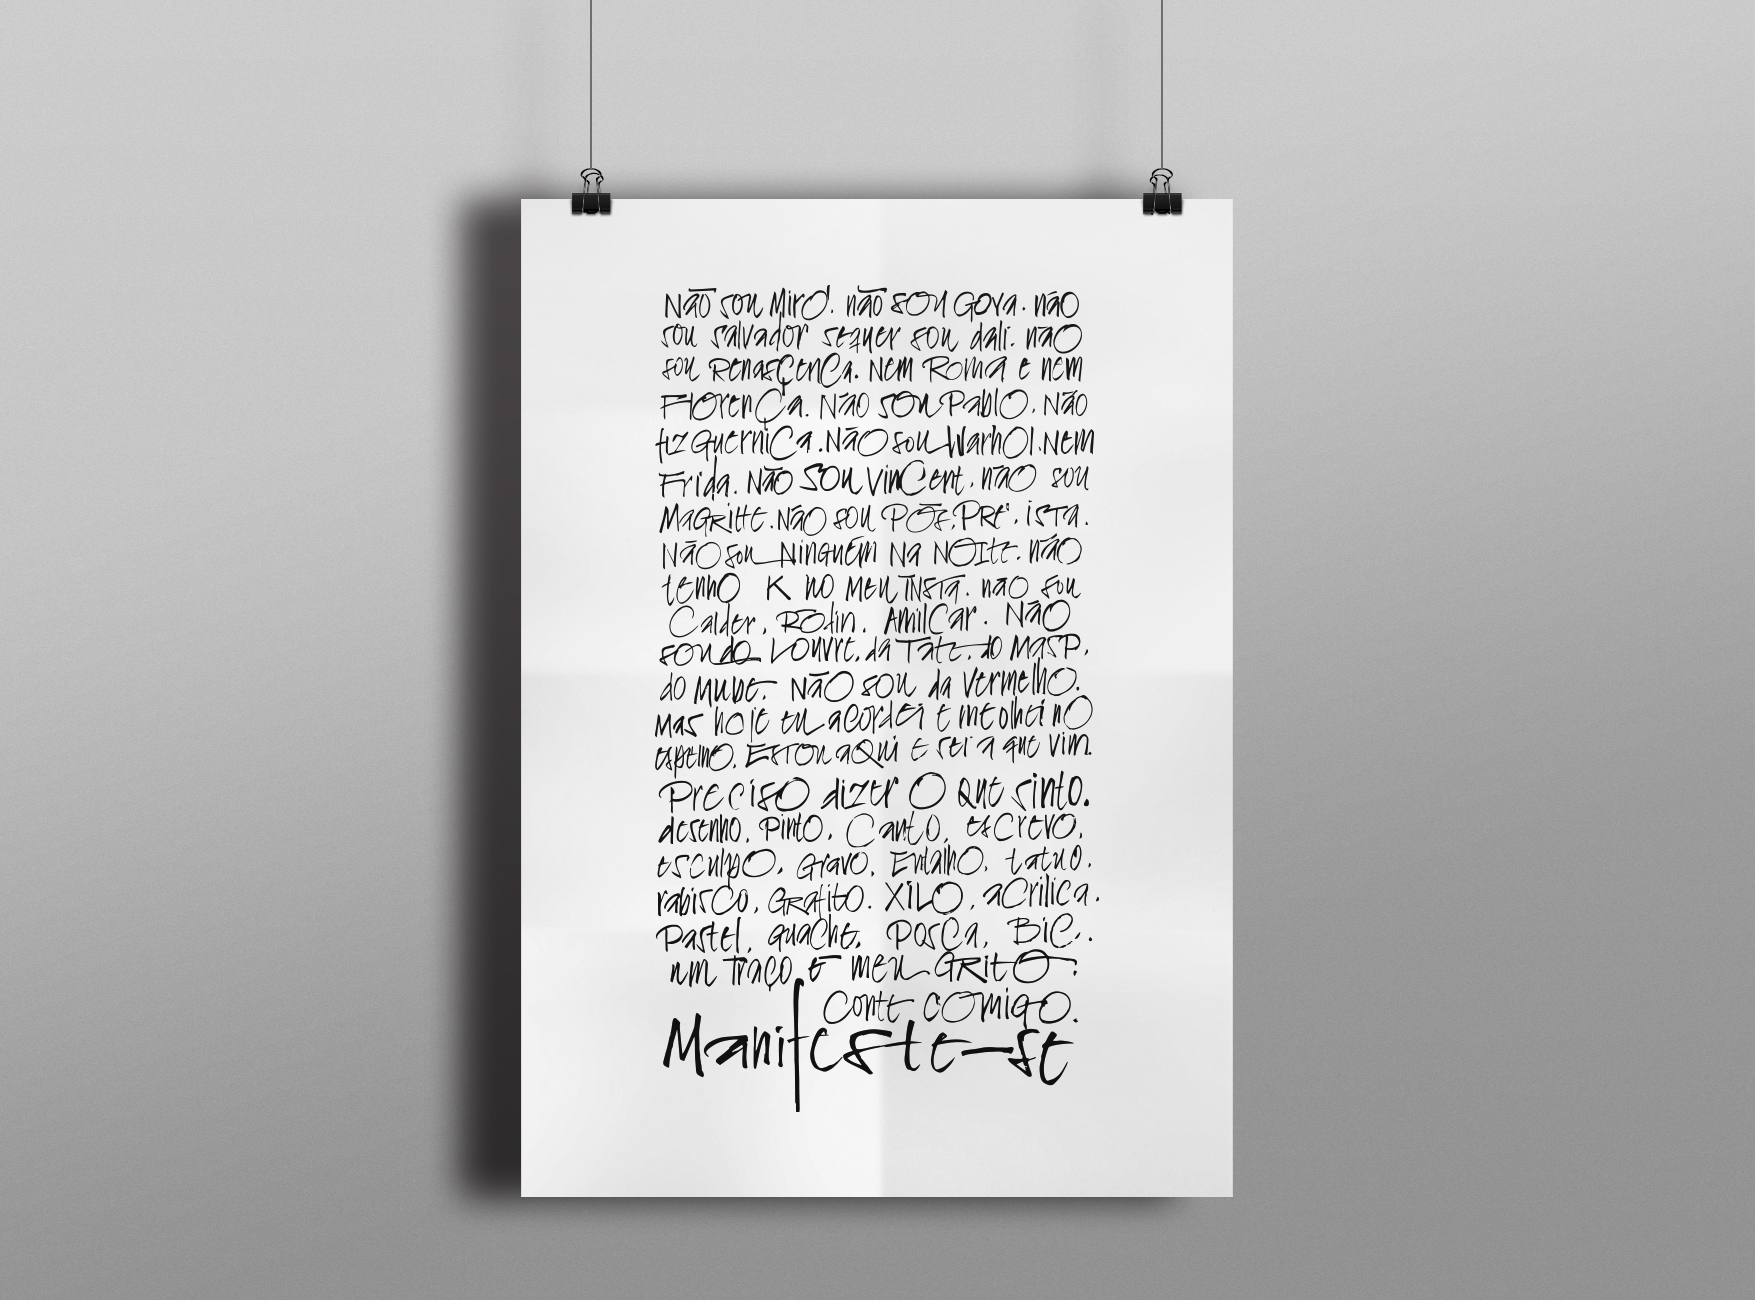 Não sou Miró. não sou Goya. não
sou salvador sequer sou dali. não
sou Renascença. Nem Roma e nem
Florença. Não sou Pablo. Não
fiz Guernica. Não sou Warhol. Nem
Frida. Não sou Vincent. não sou
Magritte. Não sou Pós, Pré. ista.
Não sou Ninguém na Noite. não
tenho K no meu insta. não sou
Calder, Rodin, Amilcar. Não
sou do Louvre, da Tate, do Masp,
do Mube. Não sou da Vermelho.
Mas hoje eu acordei e me olhei no
espelho. Estou aqui e sei a que vim.
Preciso dizer o que sinto.
desenho, Pinto, Canto, escrevo,
esculpo, Gravo, Entalho, tatuo.
rabisco, Grafito. Xilo, acrilica.
Pastel, guache, posca, Bic.
um traço é meu Grito:
Conte comigo.
Manifeste-se